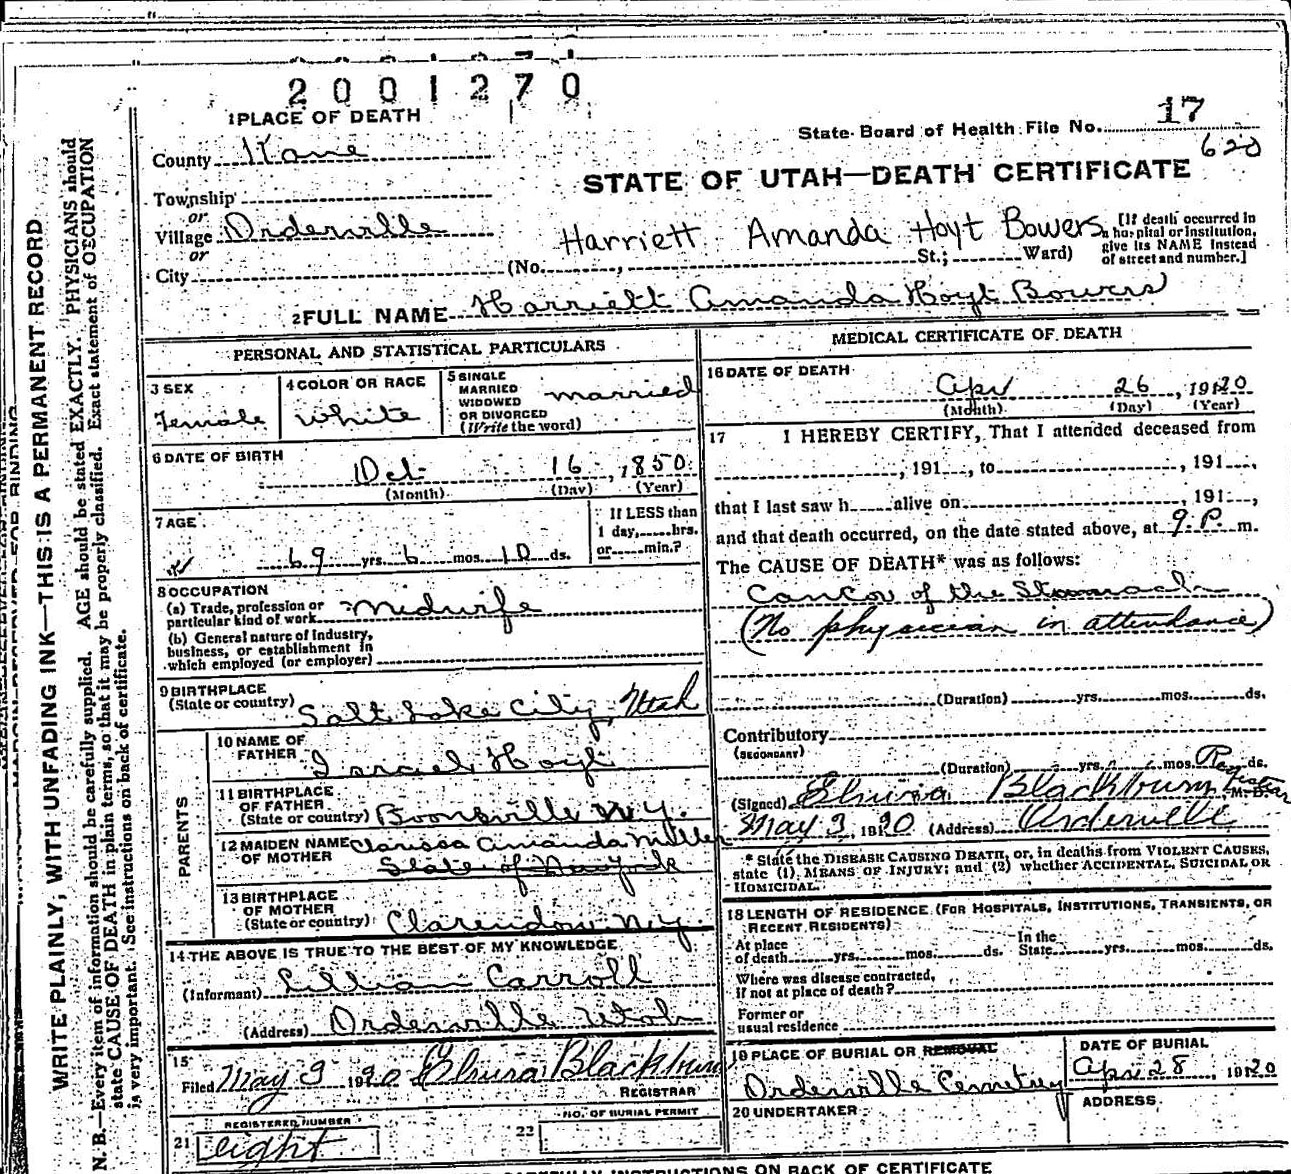 2001270
1 PLACE OF DEATH
State Board of Health File No. 17
620
County Kane
STATE OF UTAH—DEATH CERTIFICATE
Township
or
Village Orderville
or
City
Harriett Amanda Hoyt Bowers
(No. , St.; Ward)
[If death occurred in
a hospital or institution,
give its NAME instead
of street and number.]
2 FULL NAME Harriett Amanda Hoyt Bowers
PERSONAL AND STATISTICAL PARTICULARS
3 SEX
Female
4 COLOR OR RACE
White
5 SINGLE
MARRIED
WIDOWED
OR DIVORCED
(Write the word)
married
6 DATE OF BIRTH
Oct 16, 1850
(Month) (Day) (Year)
7 AGE
69 yrs. 6 mos. 10 ds.
If LESS than
1 day, hrs.
or min.?
8 OCCUPATION
(a) Trade, profession or
particular kind of work Midwife
(b) General nature of industry,
business, or establishment in
which employed (or employer)
9 BIRTHPLACE
(State or country) Salt Lake City, Utah
PARENTS
10 NAME OF
FATHER Israel Hoyt
11 BIRTHPLACE
OF FATHER
(State or country) Boonsville N.y.
12 MAIDEN NAME Clarissa Amanda Miller
OF MOTHER State of New York
13 BIRTHPLACE
OF MOTHER
(State or country) Clarendon N.y.
14 THE ABOVE IS TRUE TO THE BEST OF MY KNOWLEDGE
(Informant) Lillian Carroll
(Address) Orderville Utah
15
Filed May 3 1920 Elvira Blackburn
REGISTRAR
REGISTERED NUMBER
21 eight
NO. OF BURIAL PERMIT
22
MEDICAL CERTIFICATE OF DEATH
16 DATE OF DEATH
Apr 26, 1920
(Month) (Day) (Year)
17 I HEREBY CERTIFY, That I attended deceased from
, 191 , to , 191 ,
that I last saw h alive on , 191 ,
and that death occurred, on the date stated above, at 9 P. m.
The CAUSE OF DEATH* was as follows:
Cancor of the Stomach
(No physician in attendance)
(Duration) yrs. mos. ds.
Contributory
(SECONDARY)
(Duration) yrs. mos. ds.
Registrar
(Signed) Elvira Blackburn M. D.
May 3, 1920 (Address) Orderville
* State the DISEASE CAUSING DEATH, or, in deaths from VIOLENT CAUSES,
state (1), MEANS OF INJURY; and (2) whether ACCIDENTAL, SUICIDAL OR
HOMICIDAL.
18 LENGTH OF RESIDENCE (FOR HOSPITALS, INSTITUTIONS, TRANSIENTS, OR
RECENT RESIDENTS)
At place
of death yrs. mos. ds.
In the
State yrs. mos. ds.
Where was disease contracted,
if not at place of death?
Former or
usual residence
19 PLACE OF BURIAL OR REMOVAL
Orderville Cemetry
DATE OF BURIAL
Apr 28, 1920
20 UNDERTAKER
ADDRESS
CAREFULLY INSTRUCTIONS ON BACK OF CERTIFICATE
MARGIN RESERVED FOR BINDING
WRITE PLAINLY, WITH UNFADING INK—THIS IS A PERMANENT RECORD
N. B.—Every item of information should be carefully supplied. AGE should be stated EXACTLY. PHYSICIANS should
state CAUSE OF DEATH in plain terms, so that it may be properly classified. Exact statement of OCCUPATION
is very important. See instructions on back of certificate.